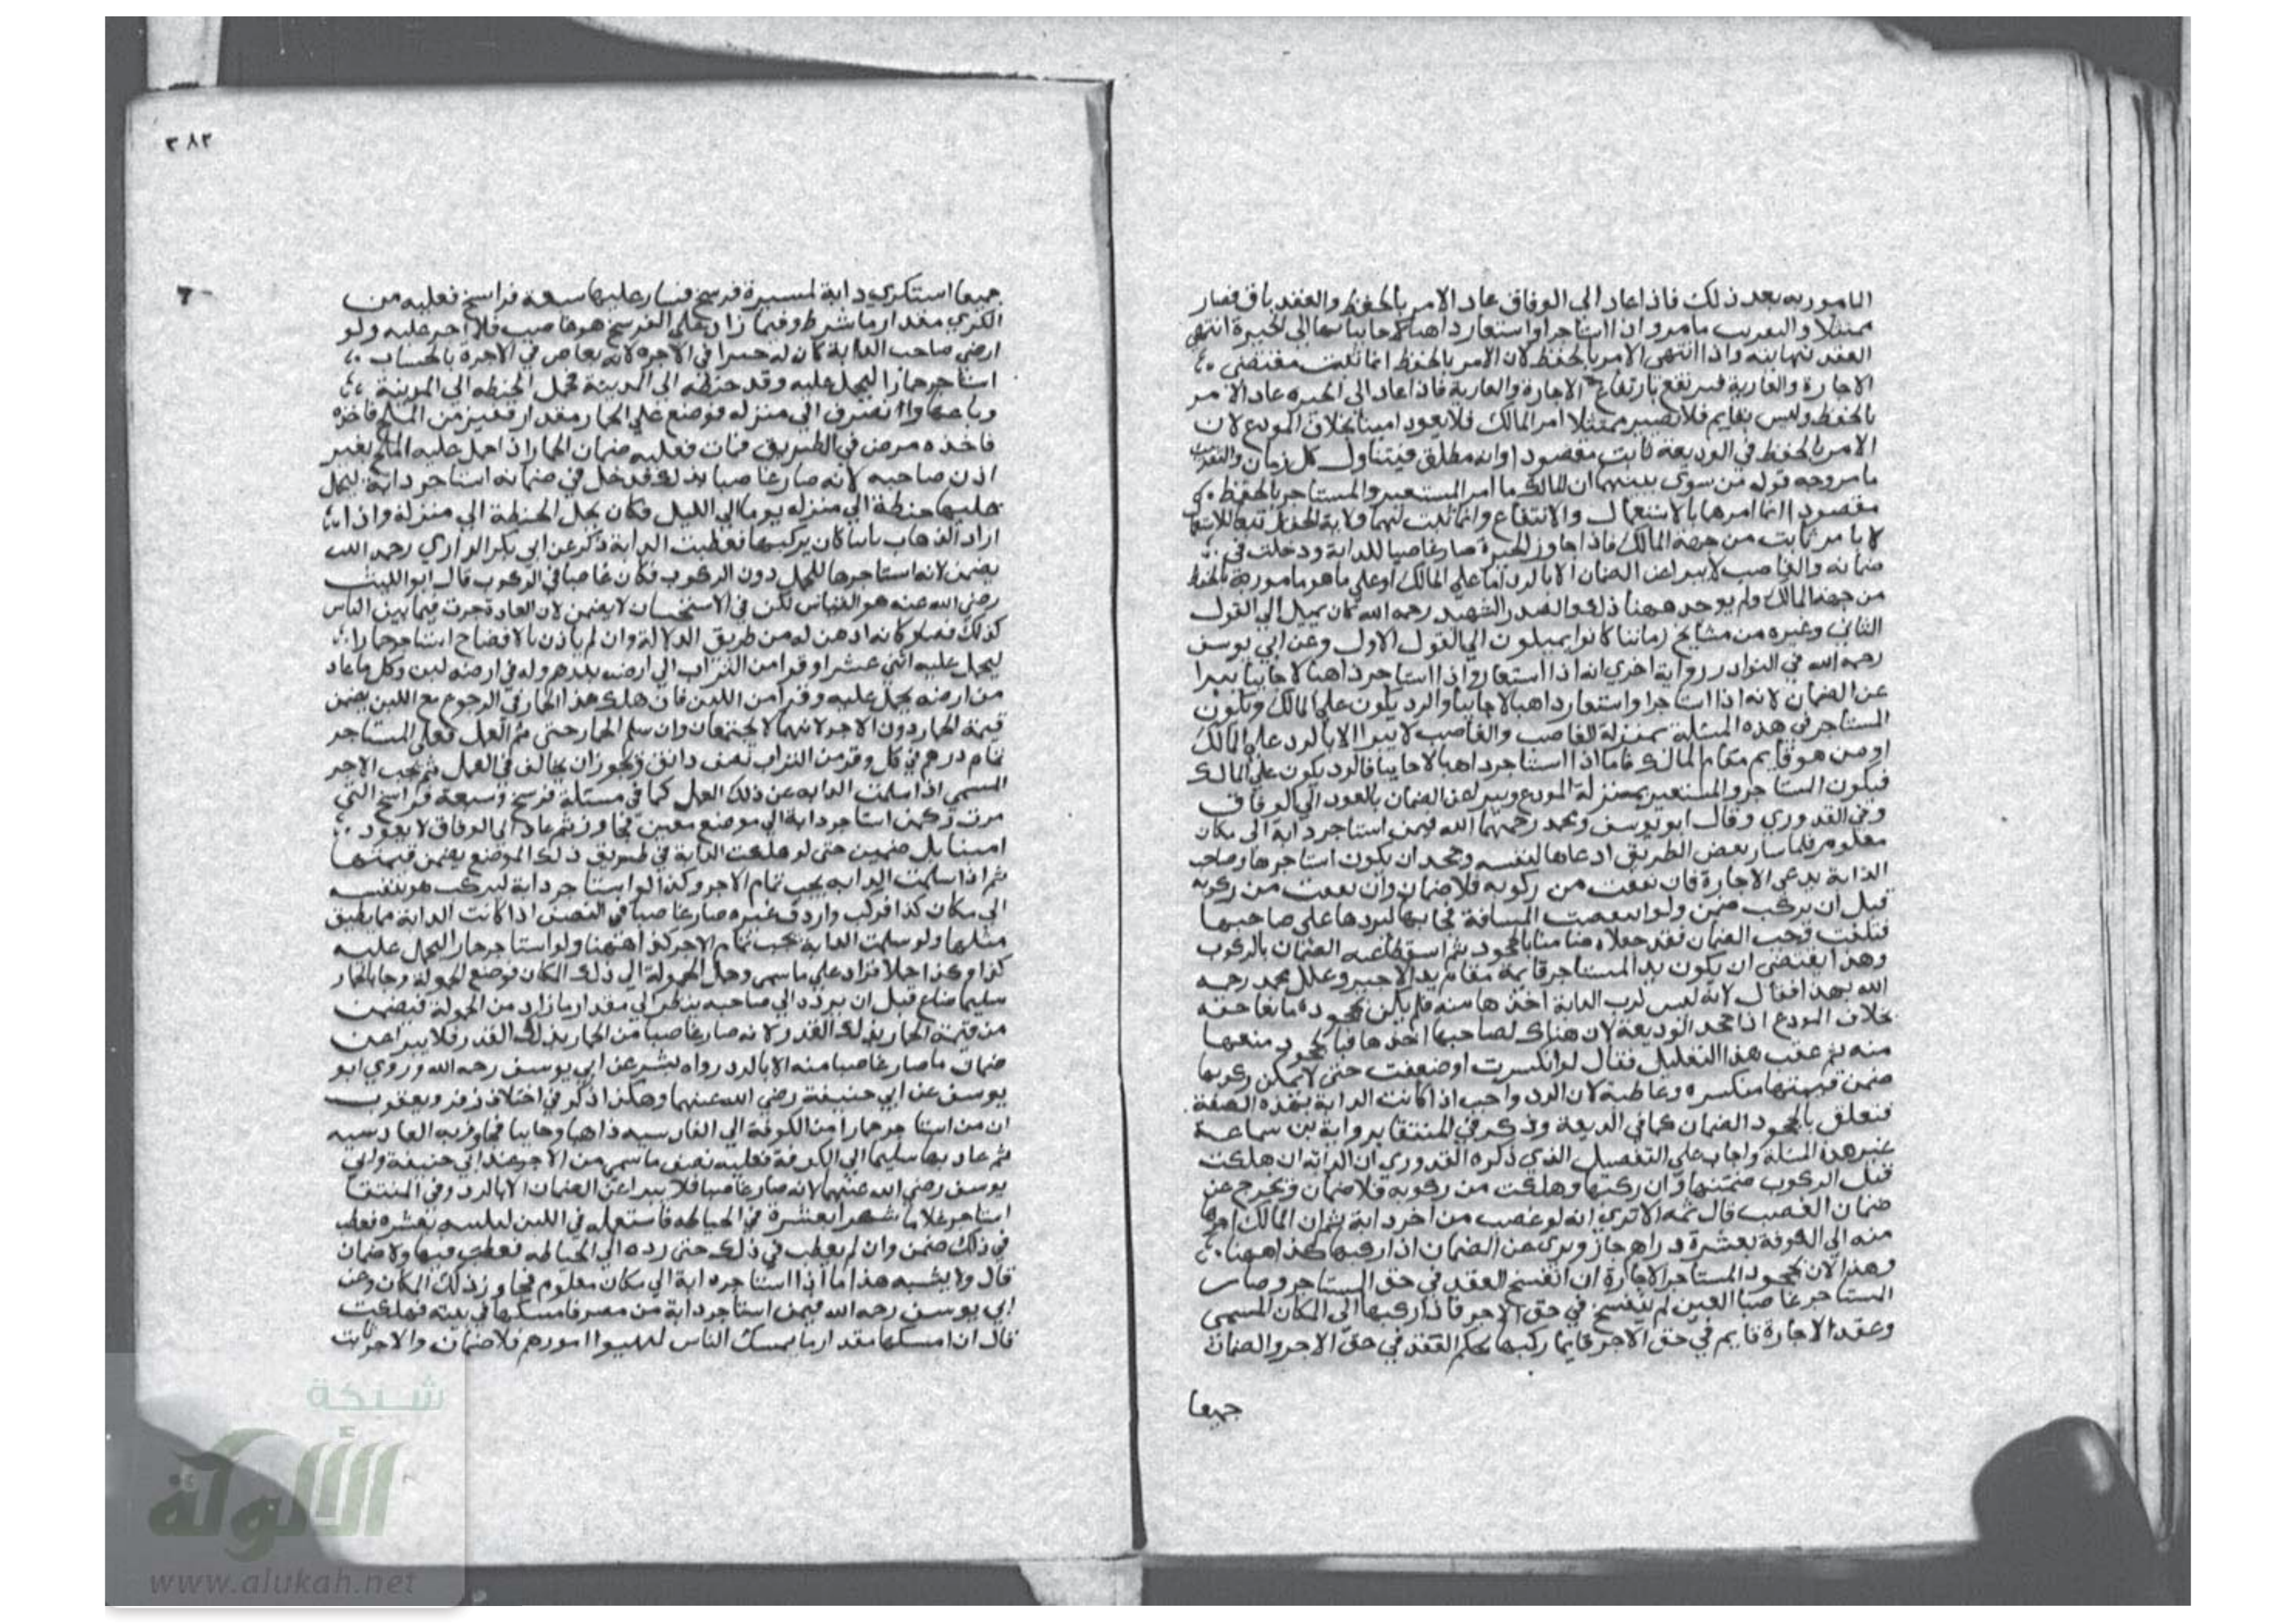 المامور به بعد ذلك فاذا عاد الى الوفاق عاد الامر بالحفظ والعقد باق فصار
ممتثلا والتقريب ما مر وان استاجر او استعار ذاهبا وجائيا بها الى الحيرة انتهى
العقد نهايته واذا انتهى الامر بالحفظ لان الامر بالحفظ انما تثبت مقتضى
الاجارة والعارية فيرتفع بارتفاع الاجارة والعارية فاذا عاد الى الحيره عاد الامر
بالحفظ وليس بقايم فلا يصير ممتثلا امر المالك فلا يعود امينا بخلاف المودع لان
الامر بالحفظ في الوديعة ثابت مقصودا وانه مطلق فيتناول كل زمان والتقريب
ما مر وجه قوله من سوى بينهما ان للمالك ما امر المستعير والمستاجر بالحفظ
مقصودا انما امرهما بالاستعمال والانتفاع وانما تثبت لهما ولاية الحفظ تبعا للانتفاع
لا بامر ثابت من جهة المالك فاذا جاوز الحيرة صار غاصبا للدابة ودخلت في
ضمانه والغاصب لا يبرا عن الضمان الا بالرد اما على المالك او على ما هو مامور به بالحفظ
من جهة المالك ولم يوجد ههنا ذلك والصدر الشهيد رحمه الله كان يميل الى القول
الثاني وغيره من مشايخ زماننا كانوا يميلون الى القول الاول وعن ابي يوسف
رحمه الله في النوادر رواية اخرى انه اذا استعار واذا استاجر ذاهبا لا جائيا يبرا
عن الضمان لانه اذا استاجر او استعار ذاهبا لا جائيا والرد يكون على المالك ويكون
المستاجر في هذه المسئلة بمنزلة الغاصب والغاصب لا يبرا الا بالرد على المالك
او من هو قايم مقام المالك فاما اذا استاجر ذاهبا لا جائيا فالرد يكون على المالك
فيكون المستاجر والمستعير بمنزلة المودع ويبرا عن الضمان بالعود الى الوفاق
وفي القدوري وقال ابو يوسف ومحمد رحمهما الله فيمن استاجر دابة الى مكان
معلوم فلما سار بعض الطريق ادعاها لنفسه وجحد ان يكون استاجرها وصاحب
الدابة يدعي الاجارة فان نفقت من ركوبه فلا ضمان وان نفقت من ركوبه
قبل ان يركب ضمن ولو انقضت المسافة فجا بها ليردها على صاحبها
فتلفت تجب الضمان فقد جعلاه ضامنا بالجحود ثم اسقطا عنه الضمان بالركوب
وهذا يقتضي ان يكون يد المستاجر قايمة مقام يد الاجير وعلل محمد رحمه
الله بهذا فقال لانه ليس لرب الدابة اخذها منه فلم يكن بجحوده مانعا حقه
بخلاف المودع اذا جحد الوديعة لان هناك لصاحبها اخذها فبالجحود منعها
منه ثم عقب هذا التعليل فقال لو انكسرت او ضعفت حتى لا يمكن ركوبها
ضمن قيمتها منكسره لان الرد واجب اذا كانت الدابة بهذه الصفة
فتعلق بالجحود الضمان كما في الديعة وذكر في المنتقا برواية بن سماعة
غير هذه المسئلة واجاب على التفصيل الذي ذكره القدوري ان الدابة ان هلكت
قبل الركوب ضمنها وان ركبها وهلكت من ركوبه فلا ضمان وتخرج عن
ضمان الغصب قال ثمه الا ترى انه لو غصب من اخر دابة ثم ان المالك اجرها
منه الى الكوفة بعشرة دراهم جاز وبرى عن الضمان اذا ركبها كذا ههنا
وهذا لان بجحود المستاجر الاجارة ان انفسخ العقد في حق المستاجر وصار
المستاجر غاصبا لعين لم ينفسخ في حق الاجر فاذا ركبها الى المكان المسمى
وعقد الاجارة قايم في حق الاجر فانما ركبها بحكم العقد في حق الاجر والضمان
جميعا
٣٨٢
جميعا استكرى دابة لمسيرة فرسخ فسار عليها سبعة فراسخ فعليه من
الكرى مقدار ما شرط وفيما زاد على الفرسخ هو غاصب فلا اجر عليه ولو
ارضى صاحب الدابة كان له في الاجره لانه يقاص في الاجرة بالحساب
استاجر حمارا ليحمل عليه وقد حنطة الى المدينة فحمل الحنطه الى المدينة
وباعها وانصرف الى منزله فوضع على الحمار مقدار قفيز من الملح فاخذه
فاخذه مرض في الطريق فمات فعليه ضمان الحمار اذا حمل عليه الملح بغير
اذن صاحبه لانه صار غاصبا بذلك فدخل في ضمانه استاجر دابة ليحمل
عليها حنطة الى منزله يوما الى الليل فكان يحمل الحنطة الى منزله واذا
اراد الذهاب ثانيا كان يركبها فعطبت الدابة ذكر عن ابي بكر الرازي رحمه الله
يضمن لانه استاجرها للحمل دون الركوب فكان غاصبا في الركوب قال ابو الليث
رضي الله عنه هو القياس لكن في الاستحسان لا يضمن لان العادة جرت فيما بين الناس
كذلك فصار كانه اذن له من طريق الدلالة وان لم ياذن بالافصاح استاجر حمارا
ليحمل عليه اثنى عشر اوقرا من التراب الى ارضه بدرهم وله في ارضه لبن وكل ما عاد
من ارضه يحمل عليه وقرا من اللبن فان هلك هذا الحمار في الرجوع مع اللبن يضمن
قيمة الحمار دون الاجر لانهما لا يجتمعان وان سلم الحمار حتى تم العمل فعلى المستاجر
تمام درهم في كل وقر من التراب نصف دانق ويجوز ان يخالف في العمل ثم يجب الاجر
المسمى اذا سلمت الدابه عن ذلك العمل كما في مسئلة فرسخ وسبعة فراسخ التي
مرت وكمن استاجر دابة الى موضع معين فجاوز ثم عاد الى الوفاق لا يعود
امينا بل ضمين حتى لو هلكت الدابة في طريق ذلك الموضع يضمن قيمتها
ثم اذا سلمت الدابه يجب تمام الاجر وكذا لو استاجر دابة ليركب هو بنفسه
الى مكان كذا فركب واردف غيره صار غاصبا في النصف اذا كانت الدابة مما يطيق
مثلها ولو سلمت الدابة يجب تمام الاجر كذا ههنا ولو استاجر حمارا ليحمل عليه
كذا وكذا حملا فزاد على ما سمى وحمل الحمولة الى ذلك المكان فوضع الحمولة وجا بالحمار
سليما فضاع قبل ان يرده الى صاحبه ينظر الى مقدار ما زاد من الحمولة فيضمن
من قيمة الحمار بذلك القدر لانه صار غاصبا من الحمار بذلك القدر فلا يبرا عن
ضمان ما صار غاصبا منه الا بالرد رواه بشر عن ابي يوسف رحمه الله وروى ابو
يوسف عن ابي حنيفة رضي الله عنهما وهكذا ذكر في اختلاف زفر ويعقوب
ان من استاجر حمارا من الكوفة الى القادسيه ذاهبا وجايبا فجاوز به القادسيه
ثم عاد بها سليما الى الكوفة فعليه نصف ما سمى من الاجر عند ابي حنيفة وابي
يوسف رضي الله عنهما لانه صار غاصبا فلا يبرا عن الضمان الا بالرد وفي المنتقا
استاجر غلاما شهرا بعشرة في الخياطه فاستعمله في اللبن ليلبنه بعشره فعطب
في ذلك ضمن وان لم يعطب في ذلك حتى رده الى الخياطه فعطب فيها ولا ضمان
قال ولا يشبه هذا ما اذا استاجر دابة الى مكان معلوم فجاوز ذلك المكان وعن
ابي يوسف رحمه الله فيمن استاجر دابة من مصر فامسكها في بيته فهلكت
قال ان امسكها مقدار ما يمسك الناس ليهيئوا امورهم فلا ضمان والاجر ثابت
شبكة
الألوكة
www.alukah.net